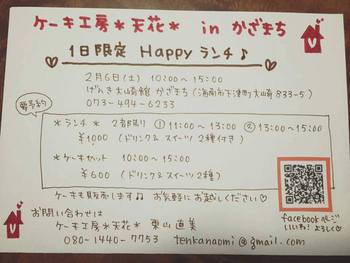 ケーキ工房＊天花＊ in かざまち
1日限定 Happy ランチ♪
2月6日(土) 10:00～15:00
げんき大崎館 かざまち (海南市下津町大崎833-5)
073-494-6233
要予約
＊ランチ＊ 2部制 ① 11:00～13:00 ② 13:00～15:00
¥1000 (ドリンク&スイーツ2種付き)
＊ケーキセット 10:00～15:00
¥600 (ドリンク&スイーツ2種)
ケーキも販売します♪ お気軽にお越しください♡
お問い合わせは
ケーキ工房＊天花＊ 栗山直美
080-1440-7753 tenkanaomi@gmail.com
facebookページ
いいね! よろしく♡